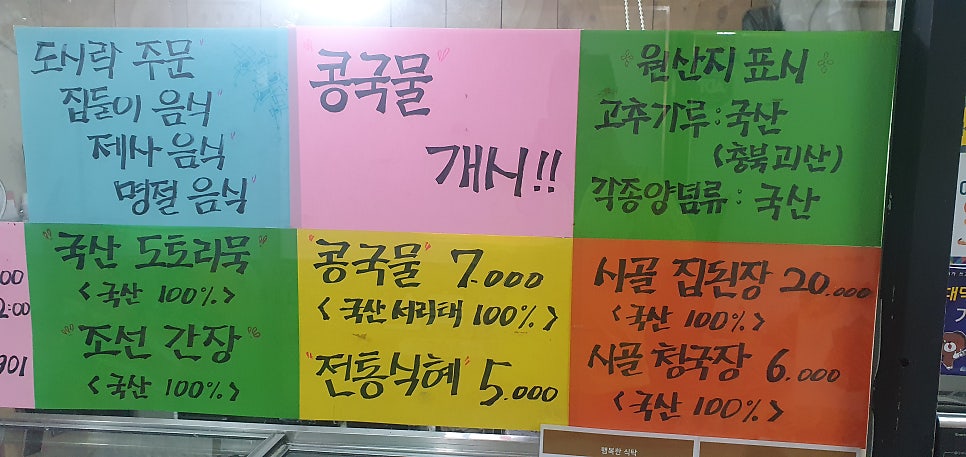 도시락 주문
집들이 음식
제사 음식
명절 음식
콩국물
개시!!
원산지 표시
고추가루 : 국산
(충북괴산)
각종양념류 : 국산
00
2:00
901
"국산 도토리묵"
<국산 100%>
"조선 간장"
<국산 100%>
"콩국물" 7.000
<국산 서리태 100%>
"전통식혜" 5.000
시골 집된장 20.000
<국산 100%>
시골 청국장 6.000
<국산 100%>
행복한 식탁